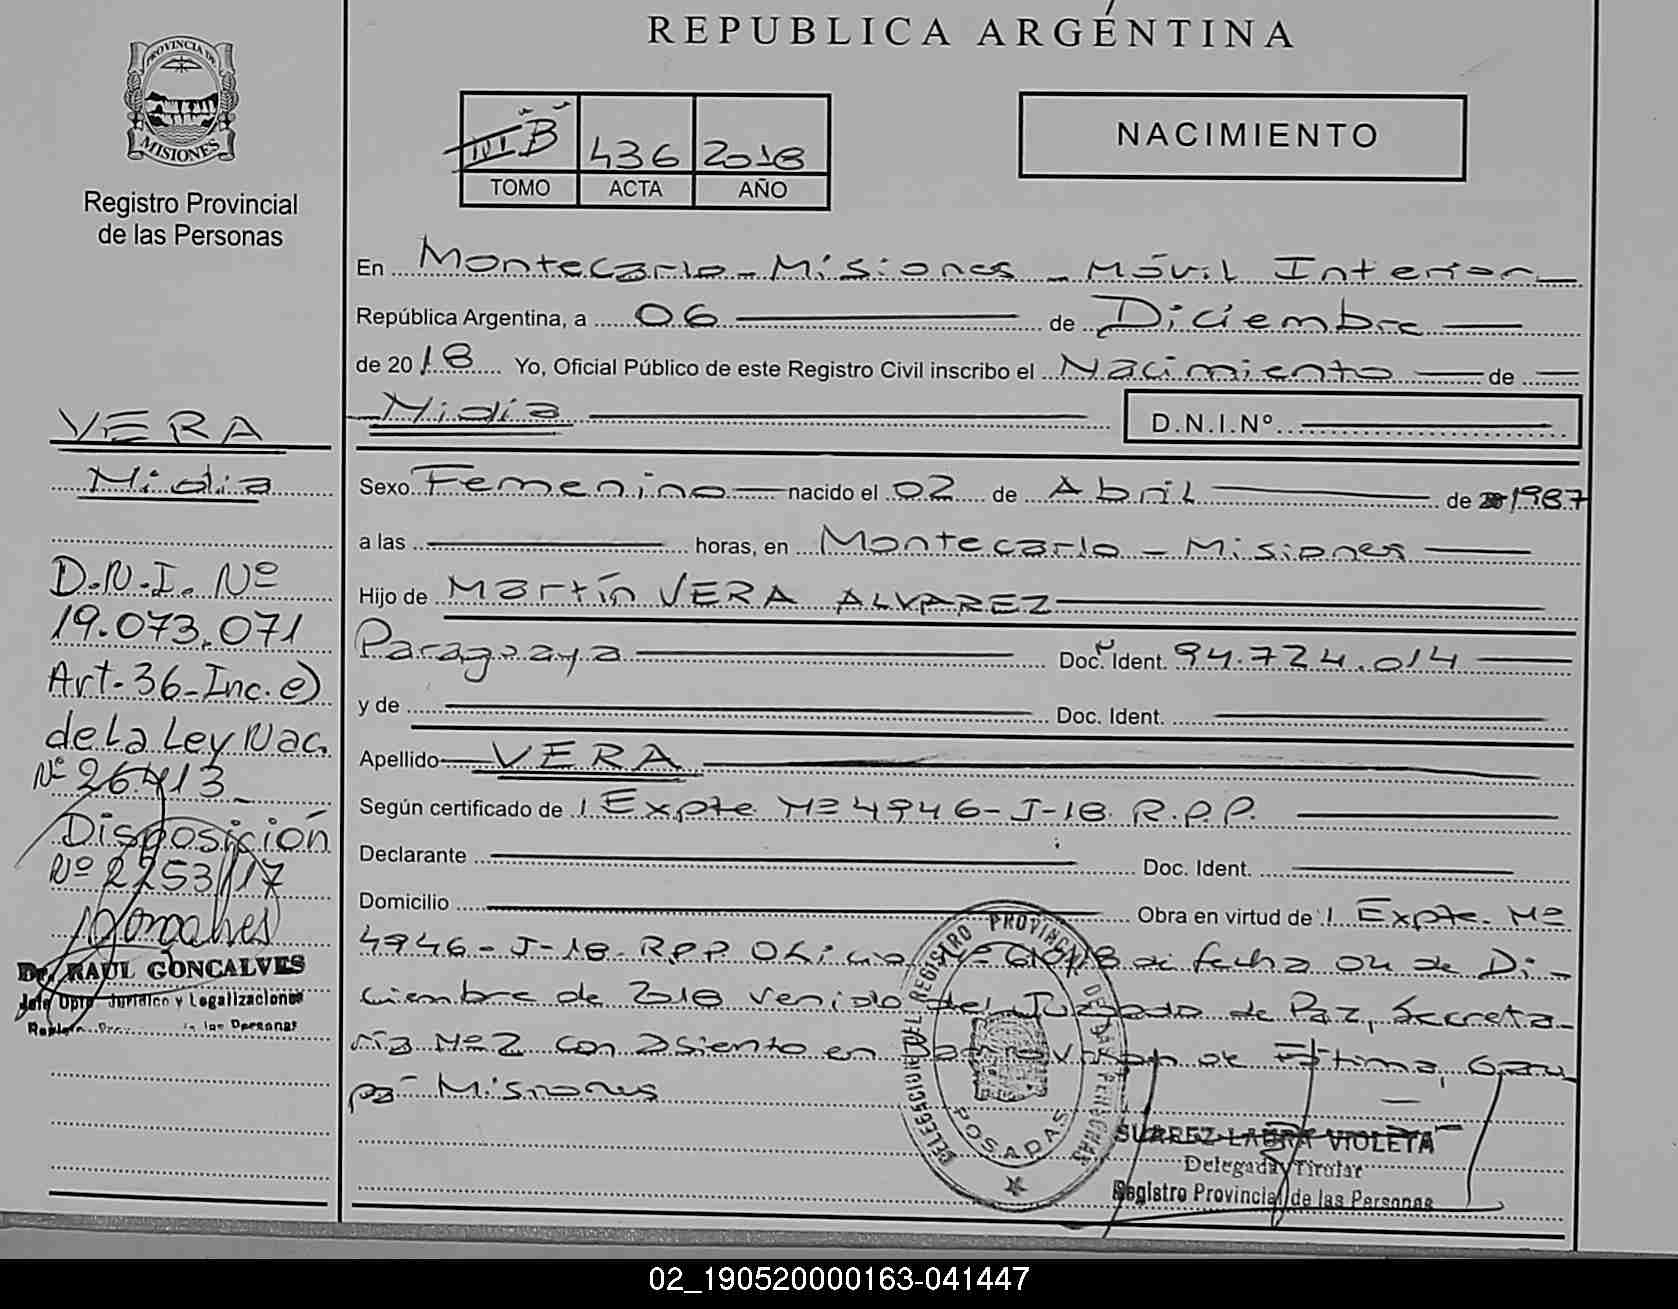 REPUBLICA ARGENTINA
PROVINCIA DE
MISIONES
Registro Provincial
de las Personas
III B 436 2018
TOMO ACTA AÑO
NACIMIENTO
En Montecarlo - Misiones - Móvil Interior
República Argentina, a 06 de Diciembre
de 2018 Yo, Oficial Público de este Registro Civil inscribo el Nacimiento de
Nidia D.N.I.Nº
Sexo Femenino nacido el 02 de Abril de 1987
a las horas, en Montecarlo - Misiones
Hijo de Martín VERA ALVAREZ
Paraguaya Doc. Ident. 94.724.014
y de Doc. Ident.
Apellido VERA
Según certificado de 1. Expte Nº 4946-J-18. R.P.P.
Declarante Doc. Ident.
Domicilio Obra en virtud de 1. Expte. Nº
4946-J-18-R.P.P Oficio Nº de fecha 04 de Di-
ciembre de 2018 venido del Juzgado de Paz, Secreta-
ría Nº 2 con asiento en de Fátima, Garu-
pá - Misiones
VERA
Nidia
D.N.I. Nº
19.073.071
Art. 36-Inc. e)
de La Ley Nac.
Nº 26413
Disposición
Nº 2253/17
Dr. RAUL GONCALVES
Jefe Dpto Jurídico y Legalizaciones
las Personas
DELEGACION DEL REGISTRO PROVINCIAL DE LAS PERSONAS
POSADAS
SUAREZ LAURA VIOLETA
Delegada Titular
Registro Provincial de las Personas
02_190520000163-041447